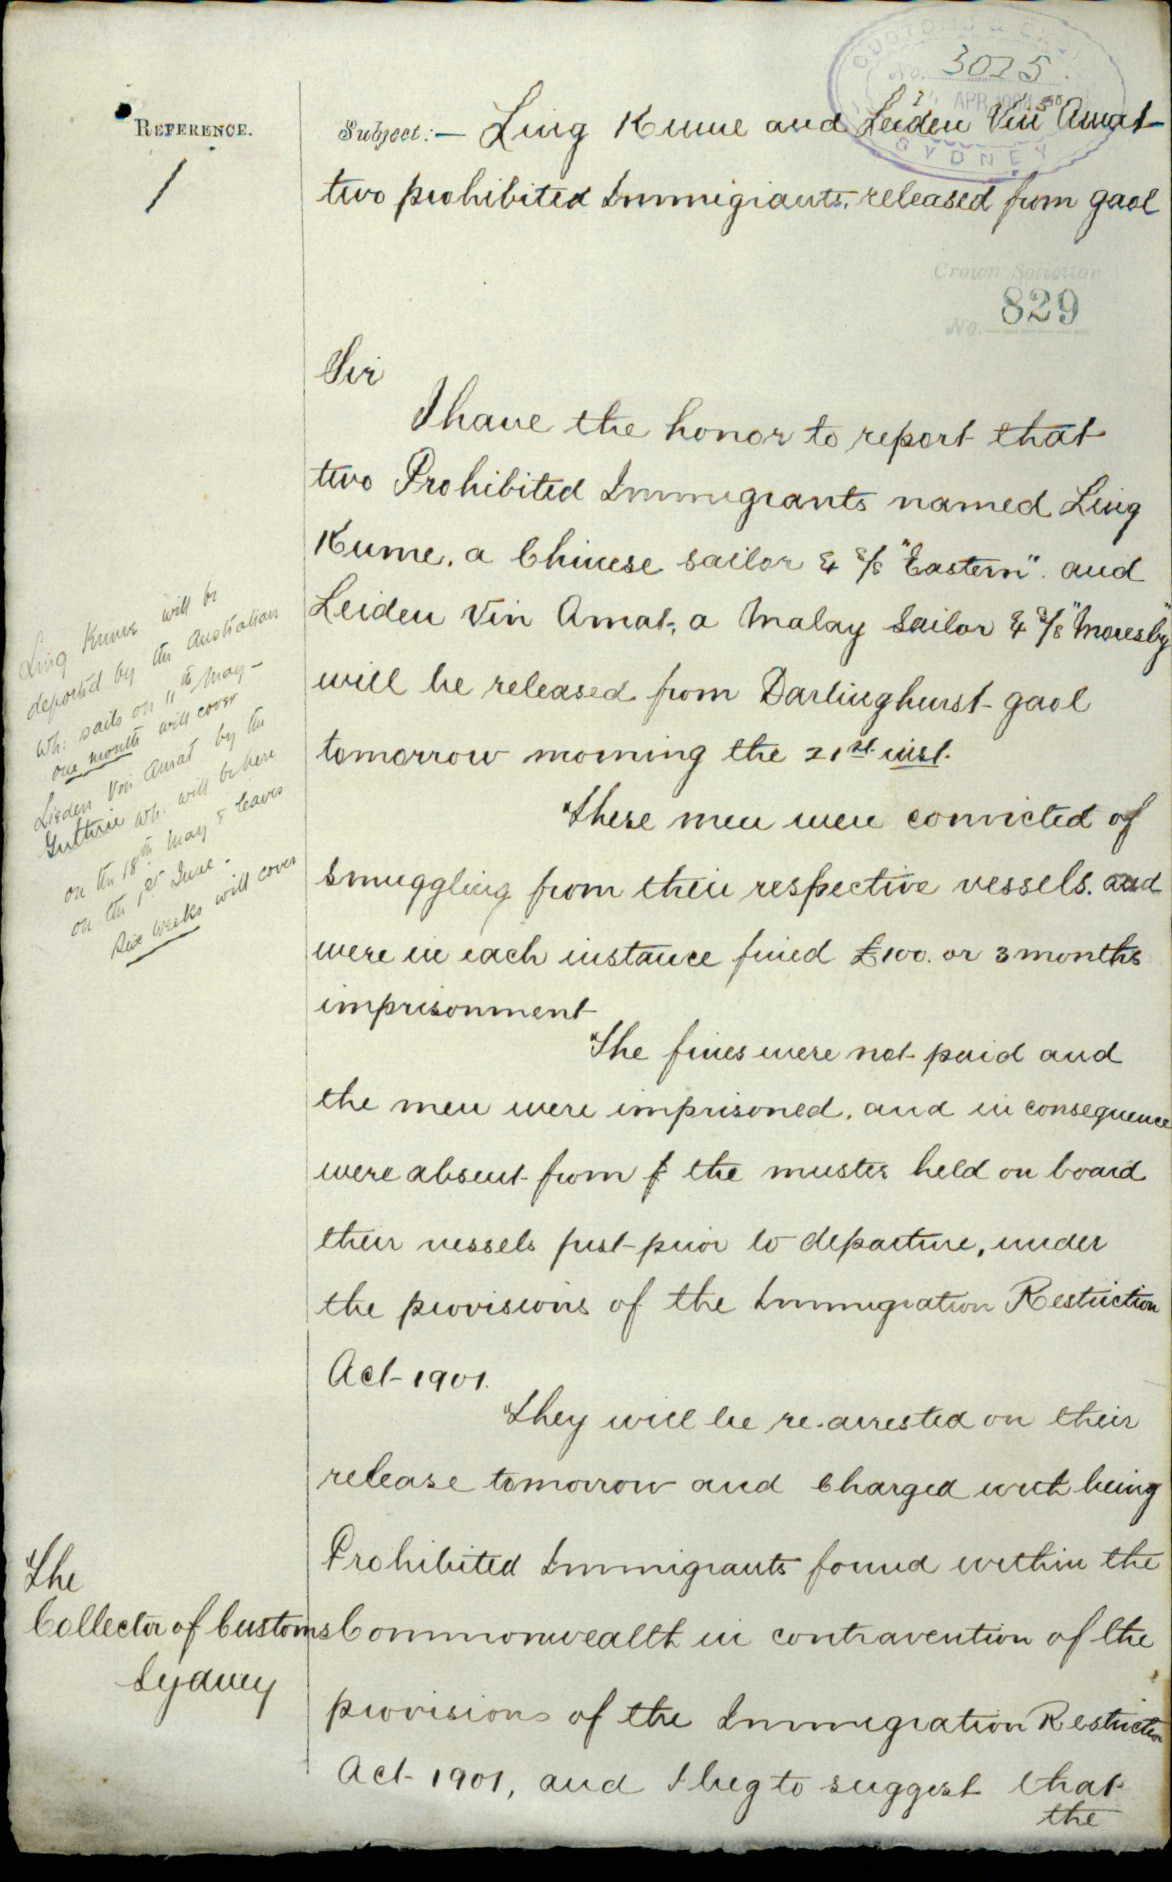 CUSTOMS & EXCISE
No. 3025
APR
SYDNEY
REFERENCE.
Subject:— Ling Kume and Leiden Vin Amat
two prohibited Immigrants, released from gaol
Crown Solicitor
No. 829
Sir
I have the honor to report that
two Prohibited Immigrants named Ling
Kume, a Chinese sailor ex s/s "Eastern" and
Leiden Vin Amat, a Malay Sailor ex s/s "Moresby"
will be released from Darlinghurst gaol
tomorrow morning the 21st inst.
These men were convicted of
smuggling from their respective vessels. and
were in each instance fined £100. or 3 months
imprisonment
The fines were not paid and
the men were imprisoned, and in consequence
were absent from the muster held on board
their vessels just prior to departure, under
the provisions of the Immigration Restriction
Act 1901.
They will be re-arrested on their
release tomorrow and Charged with being
Prohibited Immigrants found within the
Commonwealth in contravention of the
provisions of the Immigration Restriction
Act 1901, and I beg to suggest that
the
Ling Kume will be
deported by the Australian
wh: sails on 11th May –
one month will cover
Lieden Vin Amat by the
Guthrie wh: will be here
on the 18th May & leaves
on the 1st June.
Six weeks will cover
The
Collector of Customs
Sydney